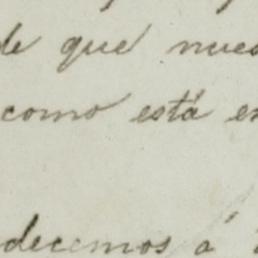 de que nues
como está en
decemos á